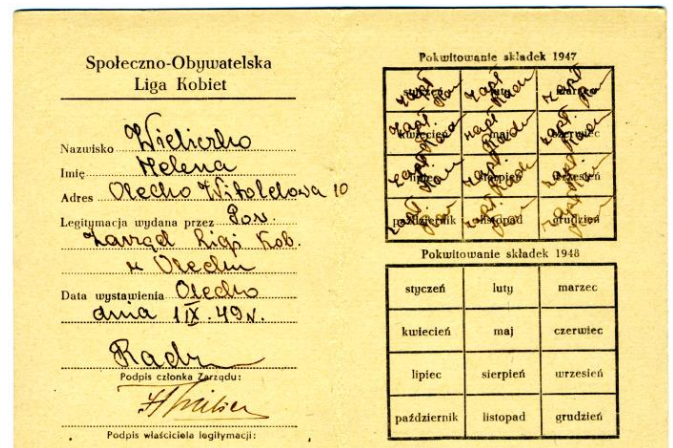 Społeczno-Obywatelska
Liga Kobiet
Nazwisko Wieliczko
Imię Helena
Adres Olecko Witoldowa 10
Legitymacja wydana przez Pow.
Zarząd Ligi Kob.
w Olecku
Data wystawienia Olecko
dnia 1 IX. 49 r.
Podpis członka Zarządu:
Podpis właściciela legitymacji:
Pokwitowanie składek 1947
luty
kwiecień maj czerwiec
lipiec sierpień wrzesień
październik listopad grudzień
Pokwitowanie składek 1948
styczeń luty marzec
kwiecień maj czerwiec
lipiec sierpień wrzesień
październik listopad grudzień